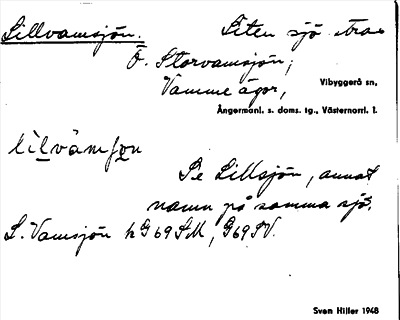 Lillvamsjön. Liten sjö strax
Ö. Storvamsjön;
Vamme ägor, Vibyggerå sn,
Ångermanl. s. doms. tg., Västernorrl. l.
lìlvàmʃøn
Se Lillsjön, annat
namn på samma sjö.
L. Vamsjön hG69SM, G69SV.
Sven Hiller 1948